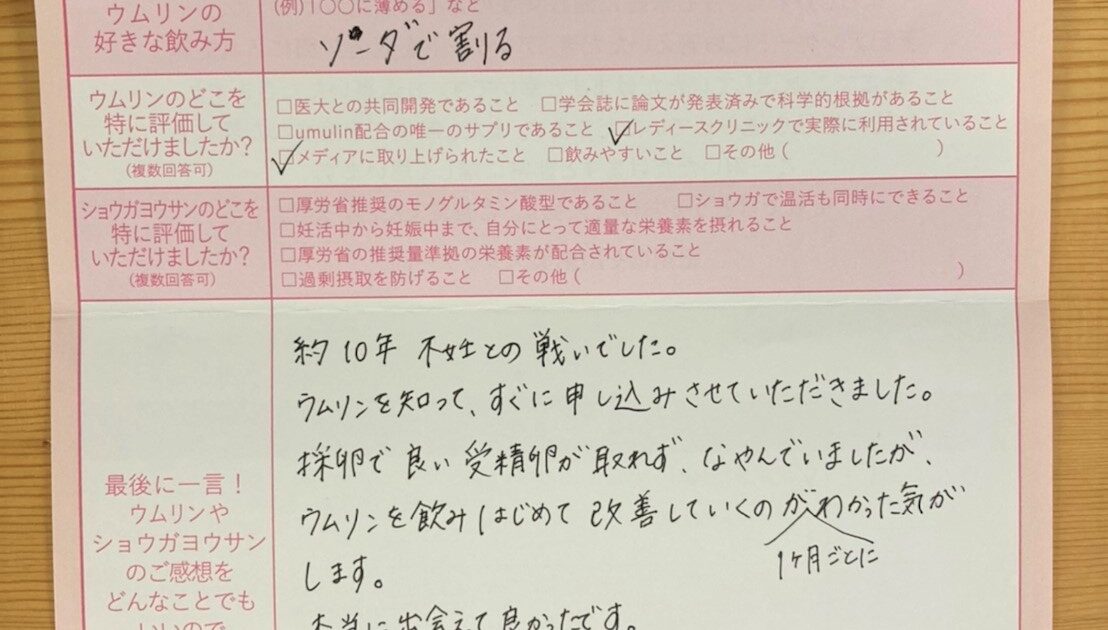 ウムリンの
好きな飲み方
(例)「○○に薄める」など
ソーダで割る
ウムリンのどこを
特に評価して
いただけましたか?
(複数回答可)
□医大との共同開発であること □学会誌に論文が発表済みで科学的根拠があること
□umulin配合の唯一のサプリであること ☑レディースクリニックで実際に利用されていること
☑メディアに取り上げられたこと □飲みやすいこと □その他( )
ショウガヨウサンのどこを
特に評価して
いただけましたか?
(複数回答可)
□厚労省推奨のモノグルタミン酸型であること □ショウガで温活も同時にできること
□妊活中から妊娠中まで、自分にとって適量な栄養素を摂れること
□厚労省の推奨量準拠の栄養素が配合されていること
□過剰摂取を防げること □その他( )
最後に一言!
ウムリンや
ショウガヨウサン
のご感想を
どんなことでも
いいので
約10年 不妊との戦いでした。
ウムリンを知って、すぐに申し込みさせていただきました。
採卵で良い受精卵が取れず、なやんでいましたが、
ウムリンを飲みはじめて改善していくのが1ヶ月ごとにわかった気が
します。
本当に出会えて良かったです。